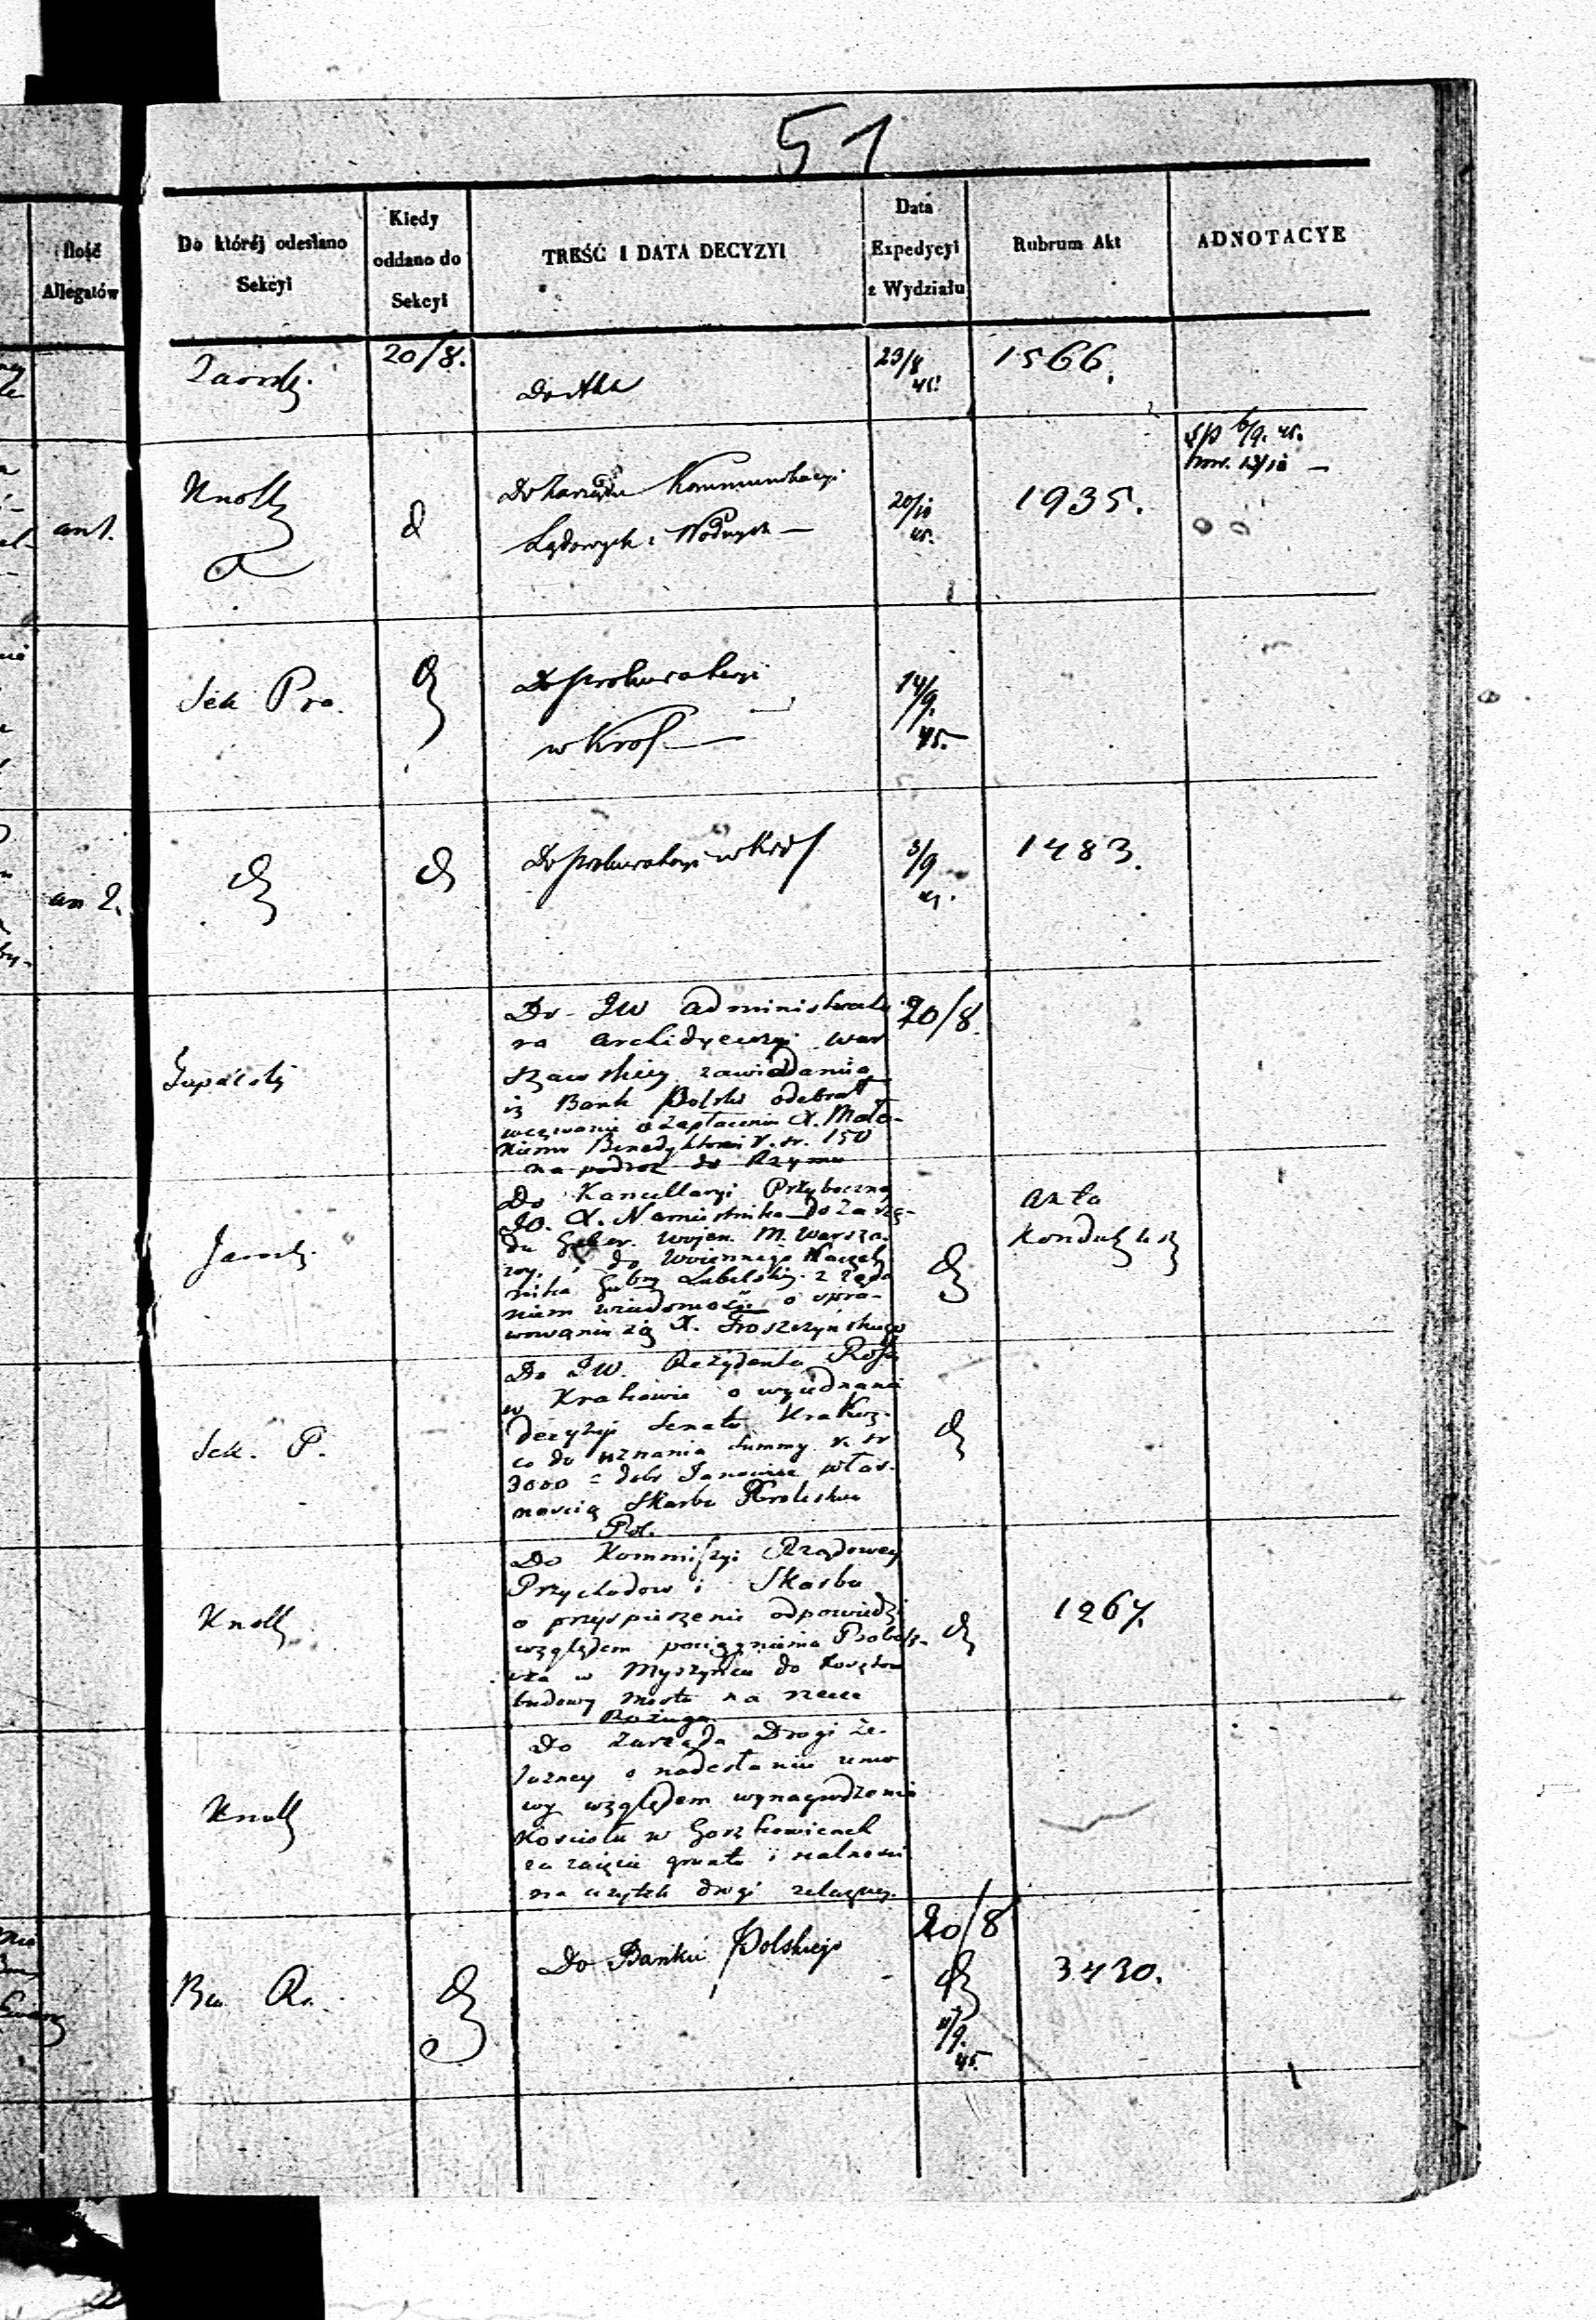 51
Ilość
Allegatów
Do któréj odesłano
Sekcyi
Kiedy
oddano do
Sekcyi
TREŚĆ I DATA DECYZYI
Data
Expedycyi
z Wydziału
Rubrum Akt
ADNOTACYE
20/8.
Do Akt
23/8
45.
1566.
an 1.
Knoll
d
Do Zarządu Kommunikacyi
Lądowych i Wodnych —
20/10
45.
1935.
6/9. 45.
Sek Pro.
Do prokuratoryi
w Król —
14/9.
45.
an 2.
Do prokuratoryi w Król
3/9
1483.
Do JW Administrato
ra Archidyecezyi War
szawskiey zawiadamia
iż Bank Polski odebrał
wezwanie o zapłacenie X.
Benedyktowi r. sr. 150
na podroż do Rzymu
20/8.
Do Kancellaryi Przyboczney
JO. X. Namiestnika do Zarzą-
du Gener. Wojen. M. Warsza.
do Woiennego Naczel
nika Gubny Lubelskiey z żąda
niem wiadomości o spra-
wowaniu się X.
Akta
Do JW. Rezydenta Ross
w Krakowie o wyiednanie
decyzyi Senatu Krakow.
co do uznania Summy r. sr
3000 z dobr Janowiec włas-
nością Skarbu Krolestwa
Pol.
Sek. P.
Do Kommissyi Rządowey
Przychodow i Skarbu
o przyspieszenie odpowiedzi
względem pociągnienia Probosz-
cza w Myszyńcu do kosztow
budowy mostu na rzece
Rozuga
Knoll
1267.
Do Zarządu Drogi Że-
lazney o nadesłanie umo
wy względem wynagrodzenia
Kościoła w Gorzkowicach
za zaięcie gruntu i realnosci
na użytek drogi żelazney.
Knoll
Do Banku Polskiego
20/8
/9.
45.
3430.